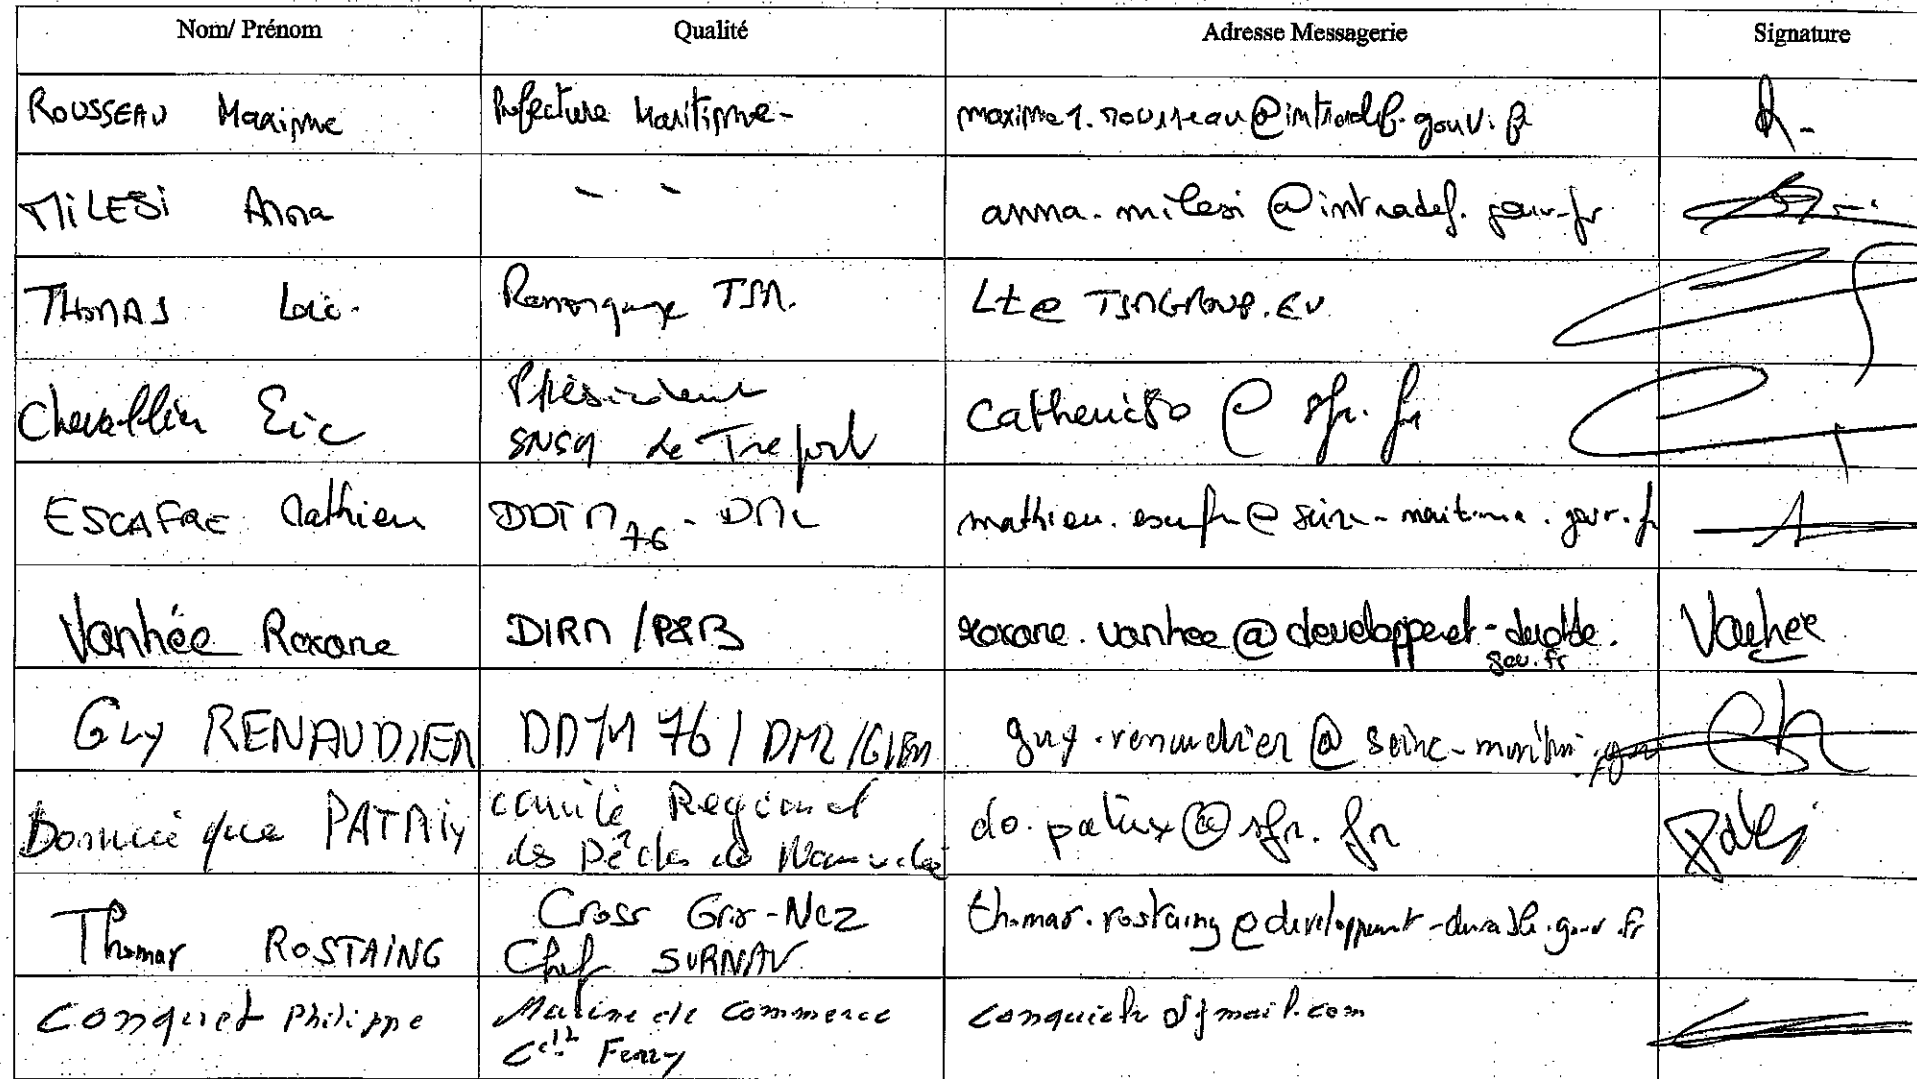 Nom/ Prénom Qualité Adresse Messagerie Signature
ROUSSEAU Maxime Préfecture Maritime- maxime1.rousseau@intradef.gouv.fr
MILESI Anna - - anna.milesi@intradef.gouv.fr
THOMAS Loïc. Remorquage TSM. Lt@TSMGROUP.EU
Chevallier Eric Président
SNSM de Treport
ESCAFRE Mathieu DDTM76 - DML mathieu.escafre@seine-maritime.gouv.fr
Vanhée Roxane DIRM / roxane.vanhee@developpement-durable.
gouv.fr Vanhée
Guy RENAUDIER DDTM 76 / DML / guy.renaudier@seine-maritime.gouv
Dominique Comité Régional
des Pêches de Normandie @sfr.fr
Thomas ROSTAING Cross Gris-Nez
Chef SURNAV thomas.rostaing@developpement-durable.gouv.fr
Conquet Philippe Marine de Commerce
Ferry